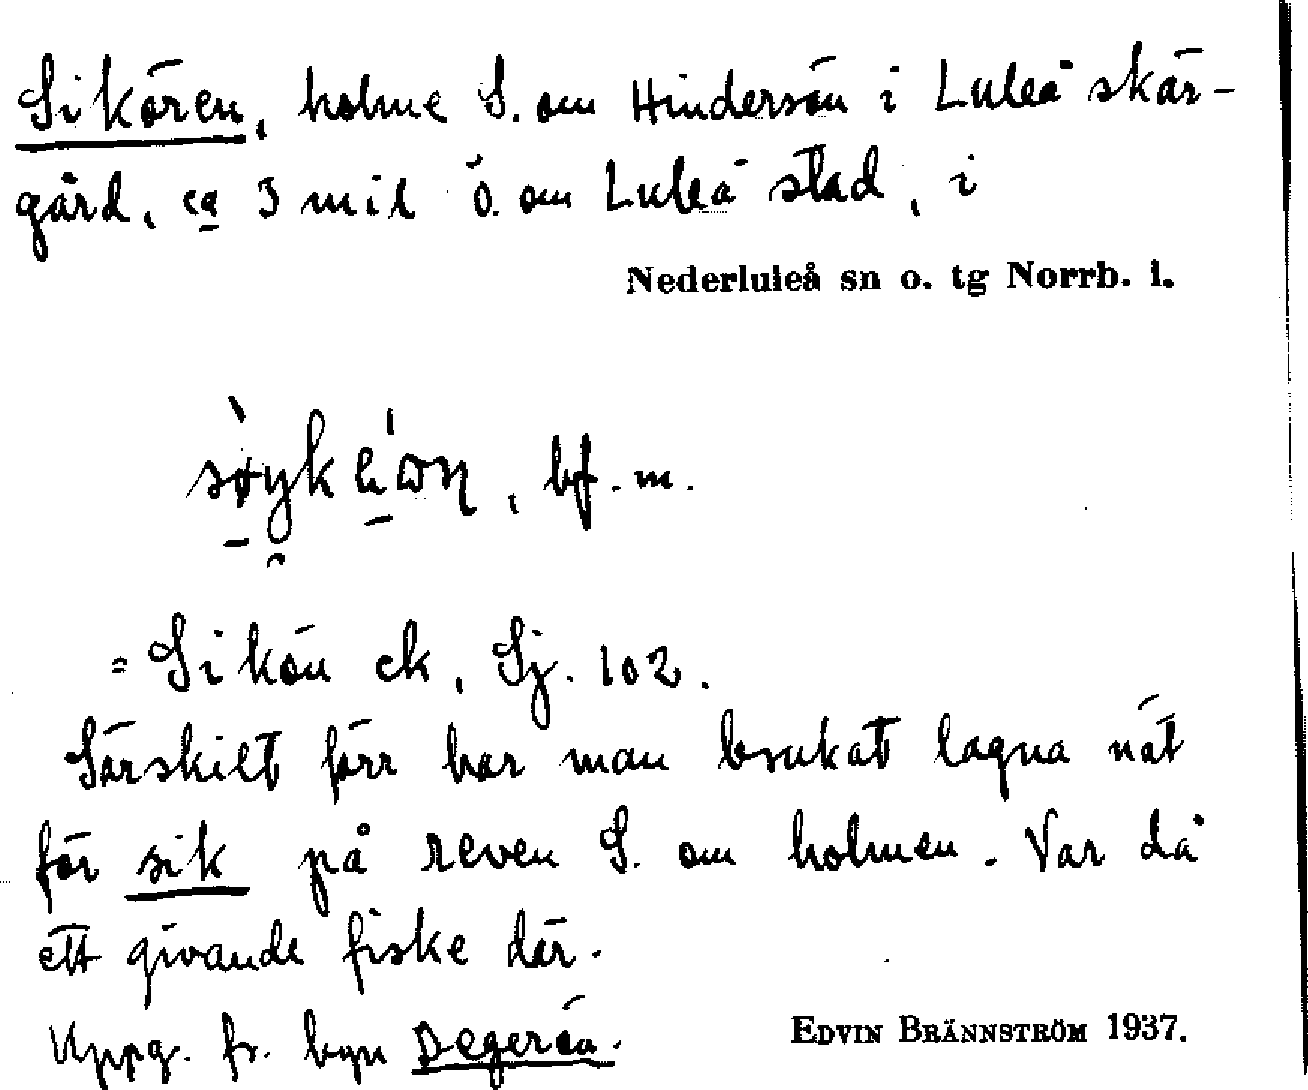 Sikören, holme S. om Hindersön i Luleå skär-
gård, ca 3 mil Ö. om Luleå stad, i
Nederluleå sn o. tg Norrb. l.
bf. m.
= Sikön ek, Sj. 102.
Särskilt förr har man brukat lagna nät
för sik på reven S. om holmen. Var då
ett givande fiske där.
Uppg. fr. byn Degerön.
EDVIN BRÄNNSTRÖM 1937.